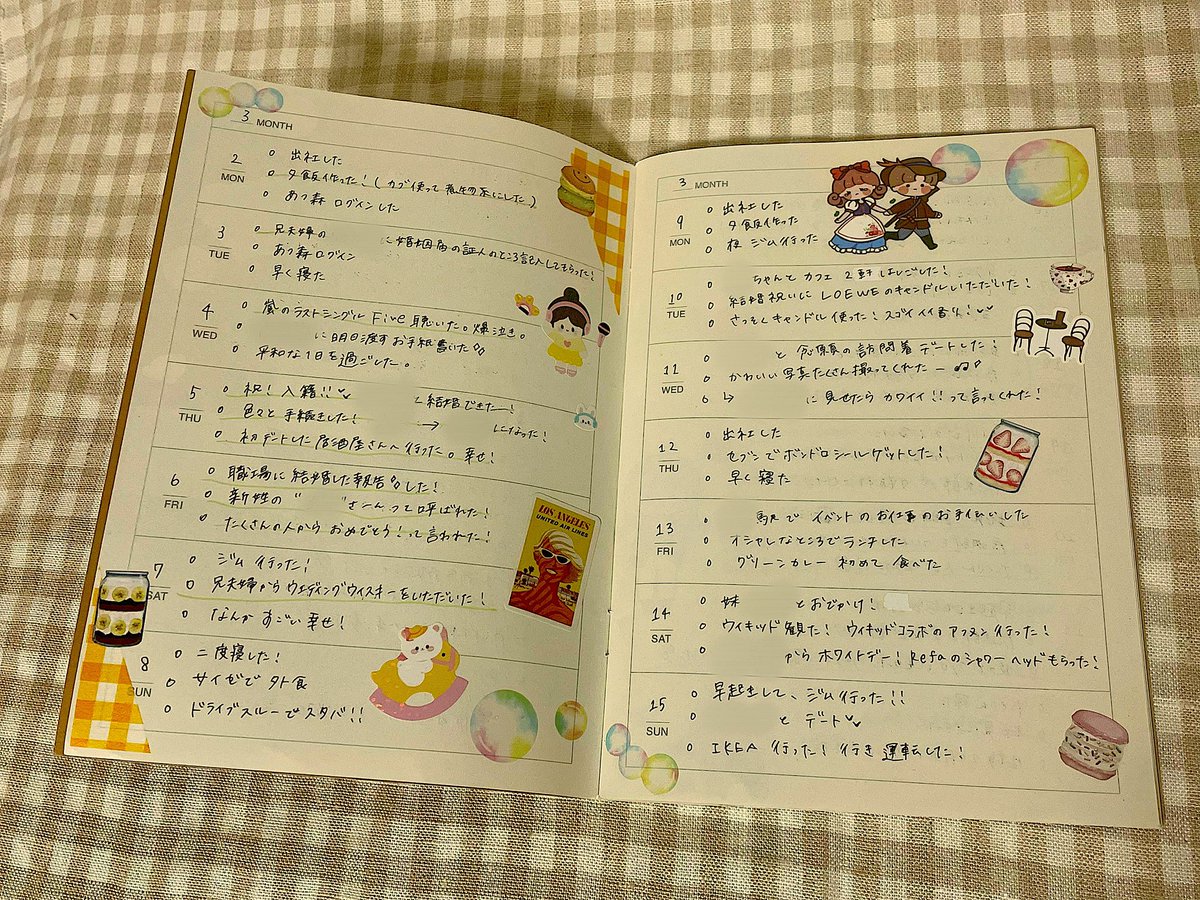 3 MONTH
2 MON
○ 出社した
○ 夕飯作った!(カブ使って煮物系にした)
○ あつ森ログインした
3 TUE
○ 兄夫婦の に婚姻届の証人のところ記入してもらった!
○ あつ森ログイン
○ 早く寝た
4 WED
○ 嵐のラストシングル Five 聴いた。爆泣き。
○ に明日渡すお手紙書いた
○ 平和な1日を過ごした。
5 THU
○ 祝!入籍!! と結婚できたー!
○ 色々と手続きした! → になった!
○ 初デートした居酒屋さんへ行った。幸せ!
6 FRI
○ 職場に結婚した報告した!
○ 新姓の" さーんって呼ばれた!
○ たくさんの人からおめでとう!って言われた!
7 SAT
○ ジム行った!
○ 兄夫婦からウェディングウイスキーをいただいた!
○ なんかすごい幸せ!
8 SUN
○ 二度寝した!
○ サイゼで外食
○ ドライブスルーでスタバ!!
LOS ANGELES
UNITED AIR LINES
3 MONTH
9 MON
○ 出社した
○ 夕飯作った
○ 夜ジム行った
10 TUE
○ ちゃんとカフェ2軒はしごした!
○ 結婚祝いにLOEWEのキャンドルいただいた!
○ さっそくキャンドル使った!スゴイイイ香り!
11 WED
○ と念願の訪問着デートした!
○ かわいい写真たくさん撮ってくれたー♪
○ ↳ に見せたらカワイイ!!って言ってくれた!
12 THU
○ 出社した
○ セブンでボンドロシールゲットした!
○ 早く寝た
13 FRI
○ 駅でイベントのお仕事のお手伝いした
○ オシャレなところでランチした
○ グリーンカレー初めて食べた
14 SAT
○ 妹 とおでかけ!
○ ウィキッド観た!ウィキッドコラボのアフヌン行った!
○ からホワイトデー!Refaのシャワーヘッドもらった!
15 SUN
○ 早起きして、ジム行った!!
○ とデート
○ IKEA行った!行き運転した!